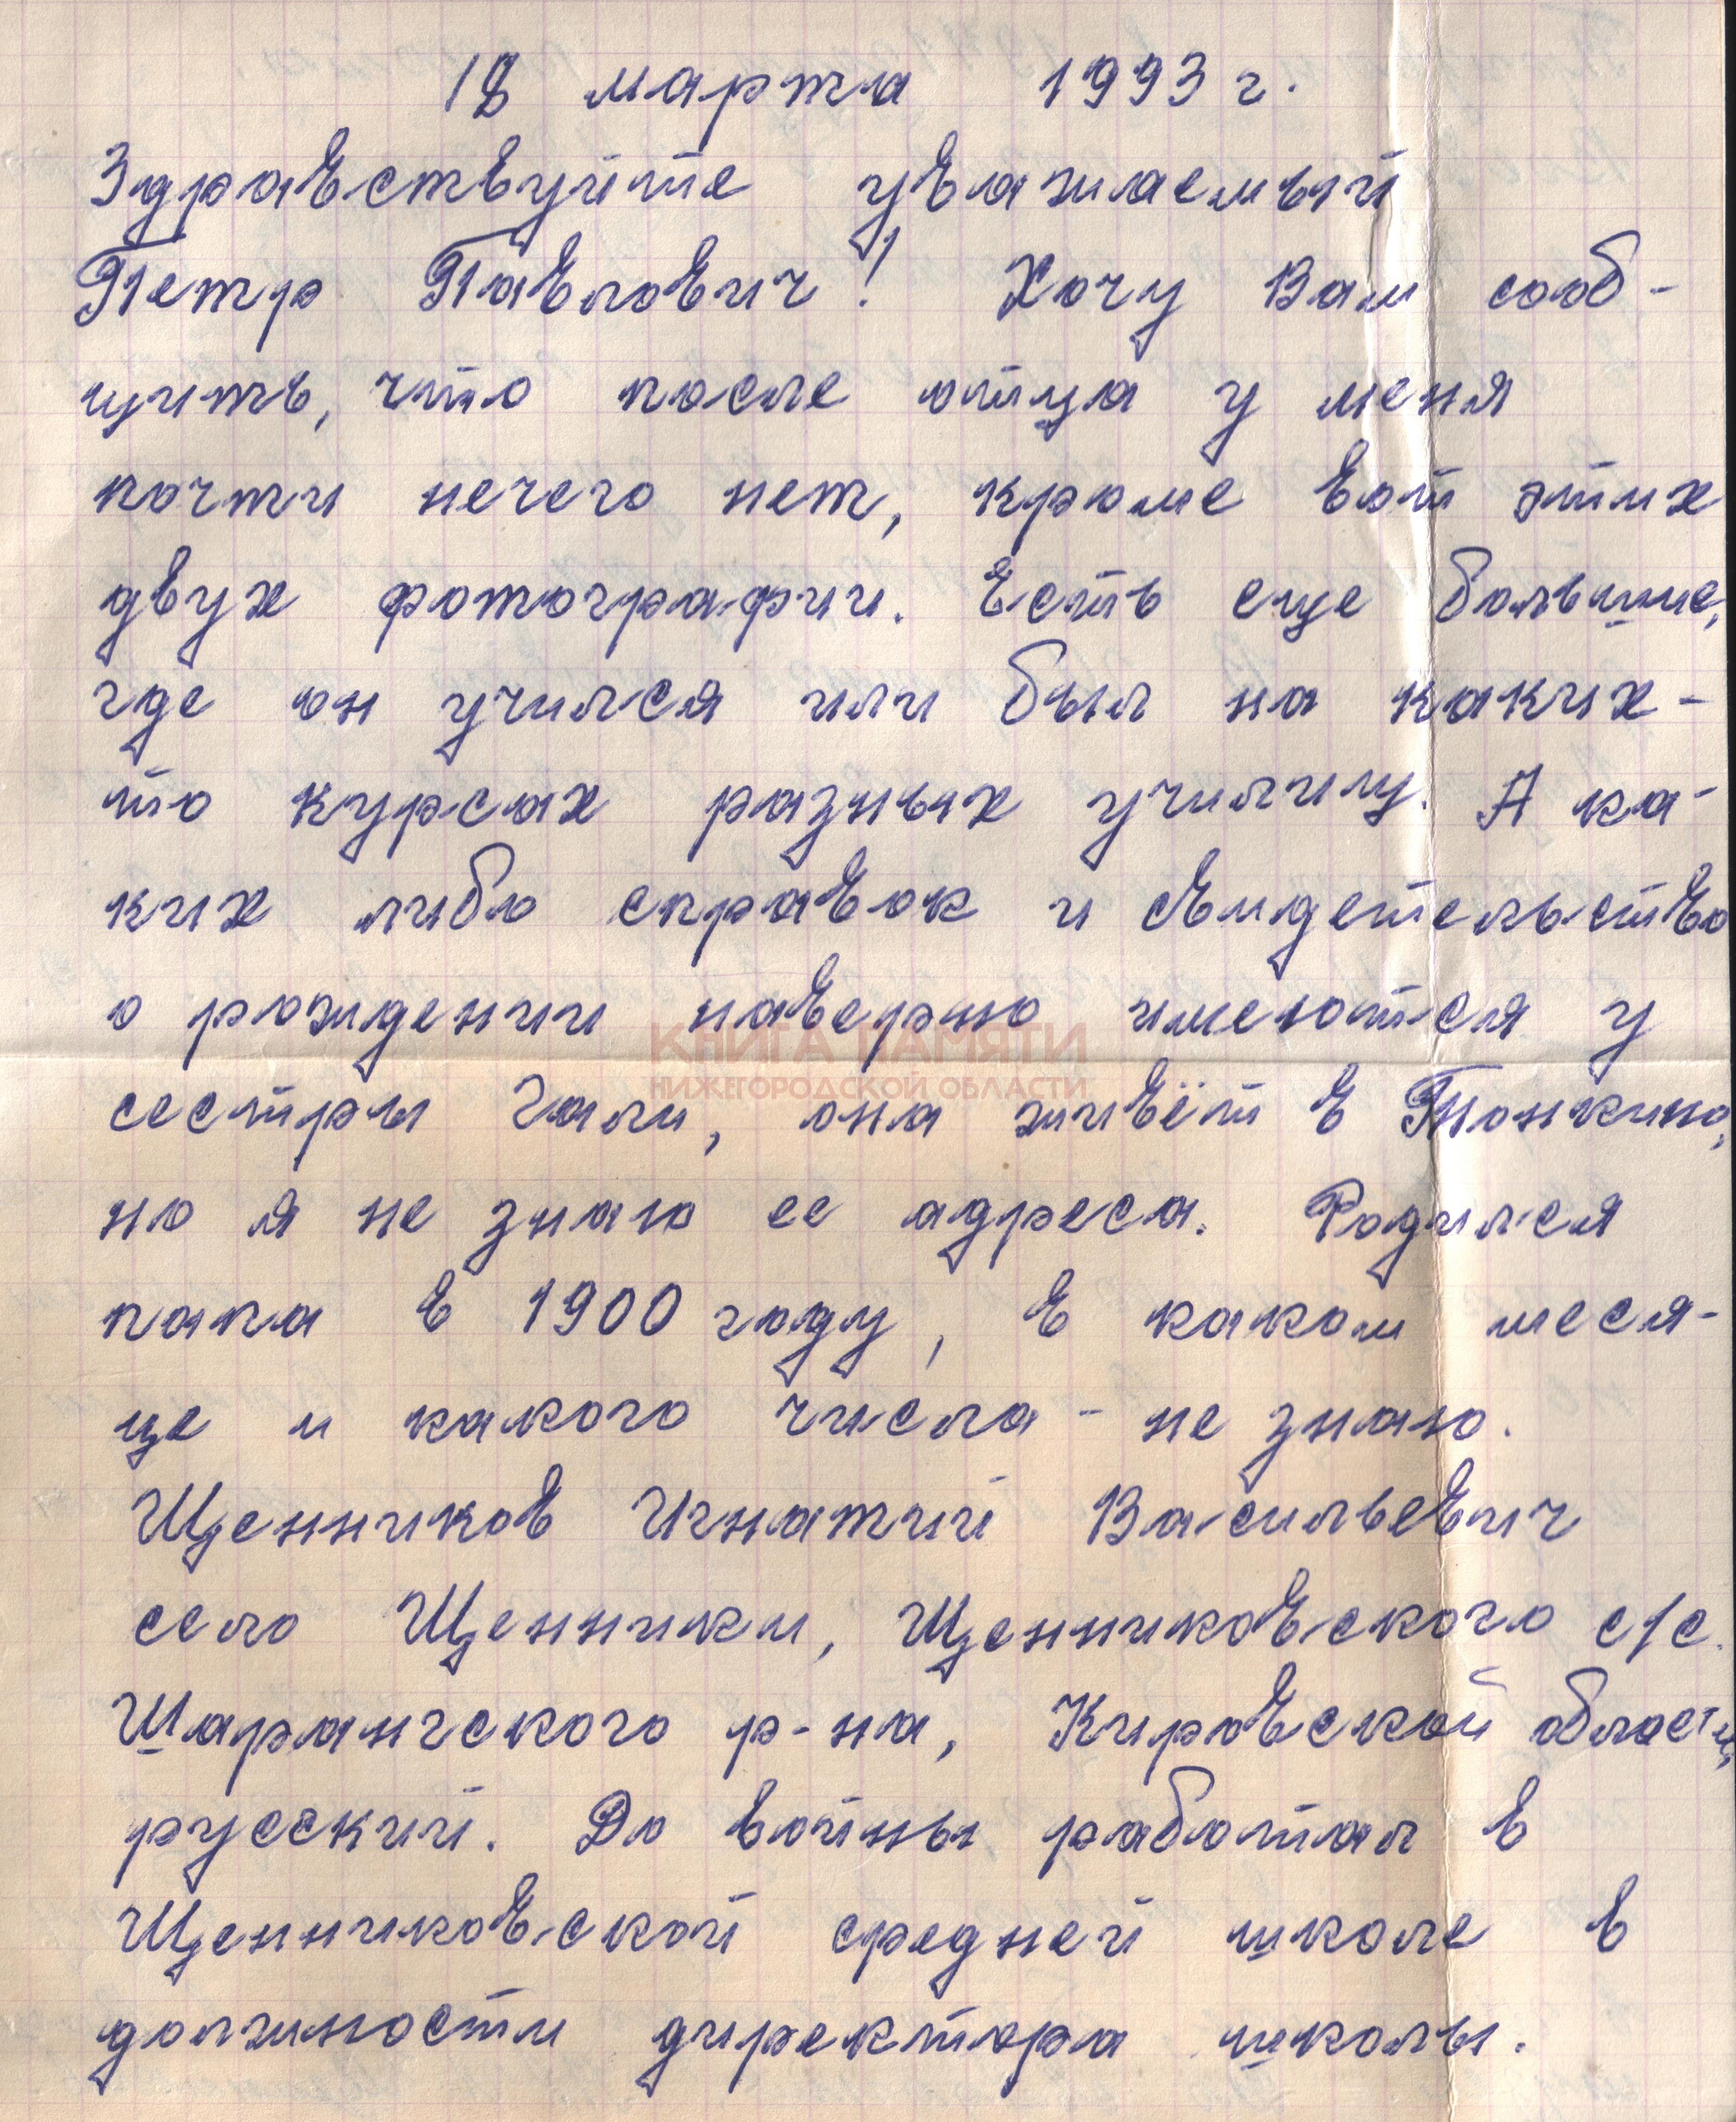 18 марта 1993 г.
Здравствуйте уважаемый
Петр Павлович! Хочу Вам сооб-
щить, что после отца у меня
почти нечего нет, кроме вот этих
двух фотографии. Есть еще большие,
где он учился или был на каких-
то курсах разных училищ. А ка-
ких либо справок и свидетельство
о рождении наверно имеются у
КНИГА ПАМЯТИ
НИЖЕГОРОДСКОЙ ОБЛАСТИ
сестры Гали, она живёт в Тонкино,
но я не знаю ее адреса. Родился
папа в 1900 году, в каком меся-
це и какого числа - не знаю.
Щенников Игнатий Васильевич
село Щенники, Щенниковского с/с.
Шарангского р-на, Кировской области,
русский. До войны работал в
Щенниковской средней школе в
должности директора школы.